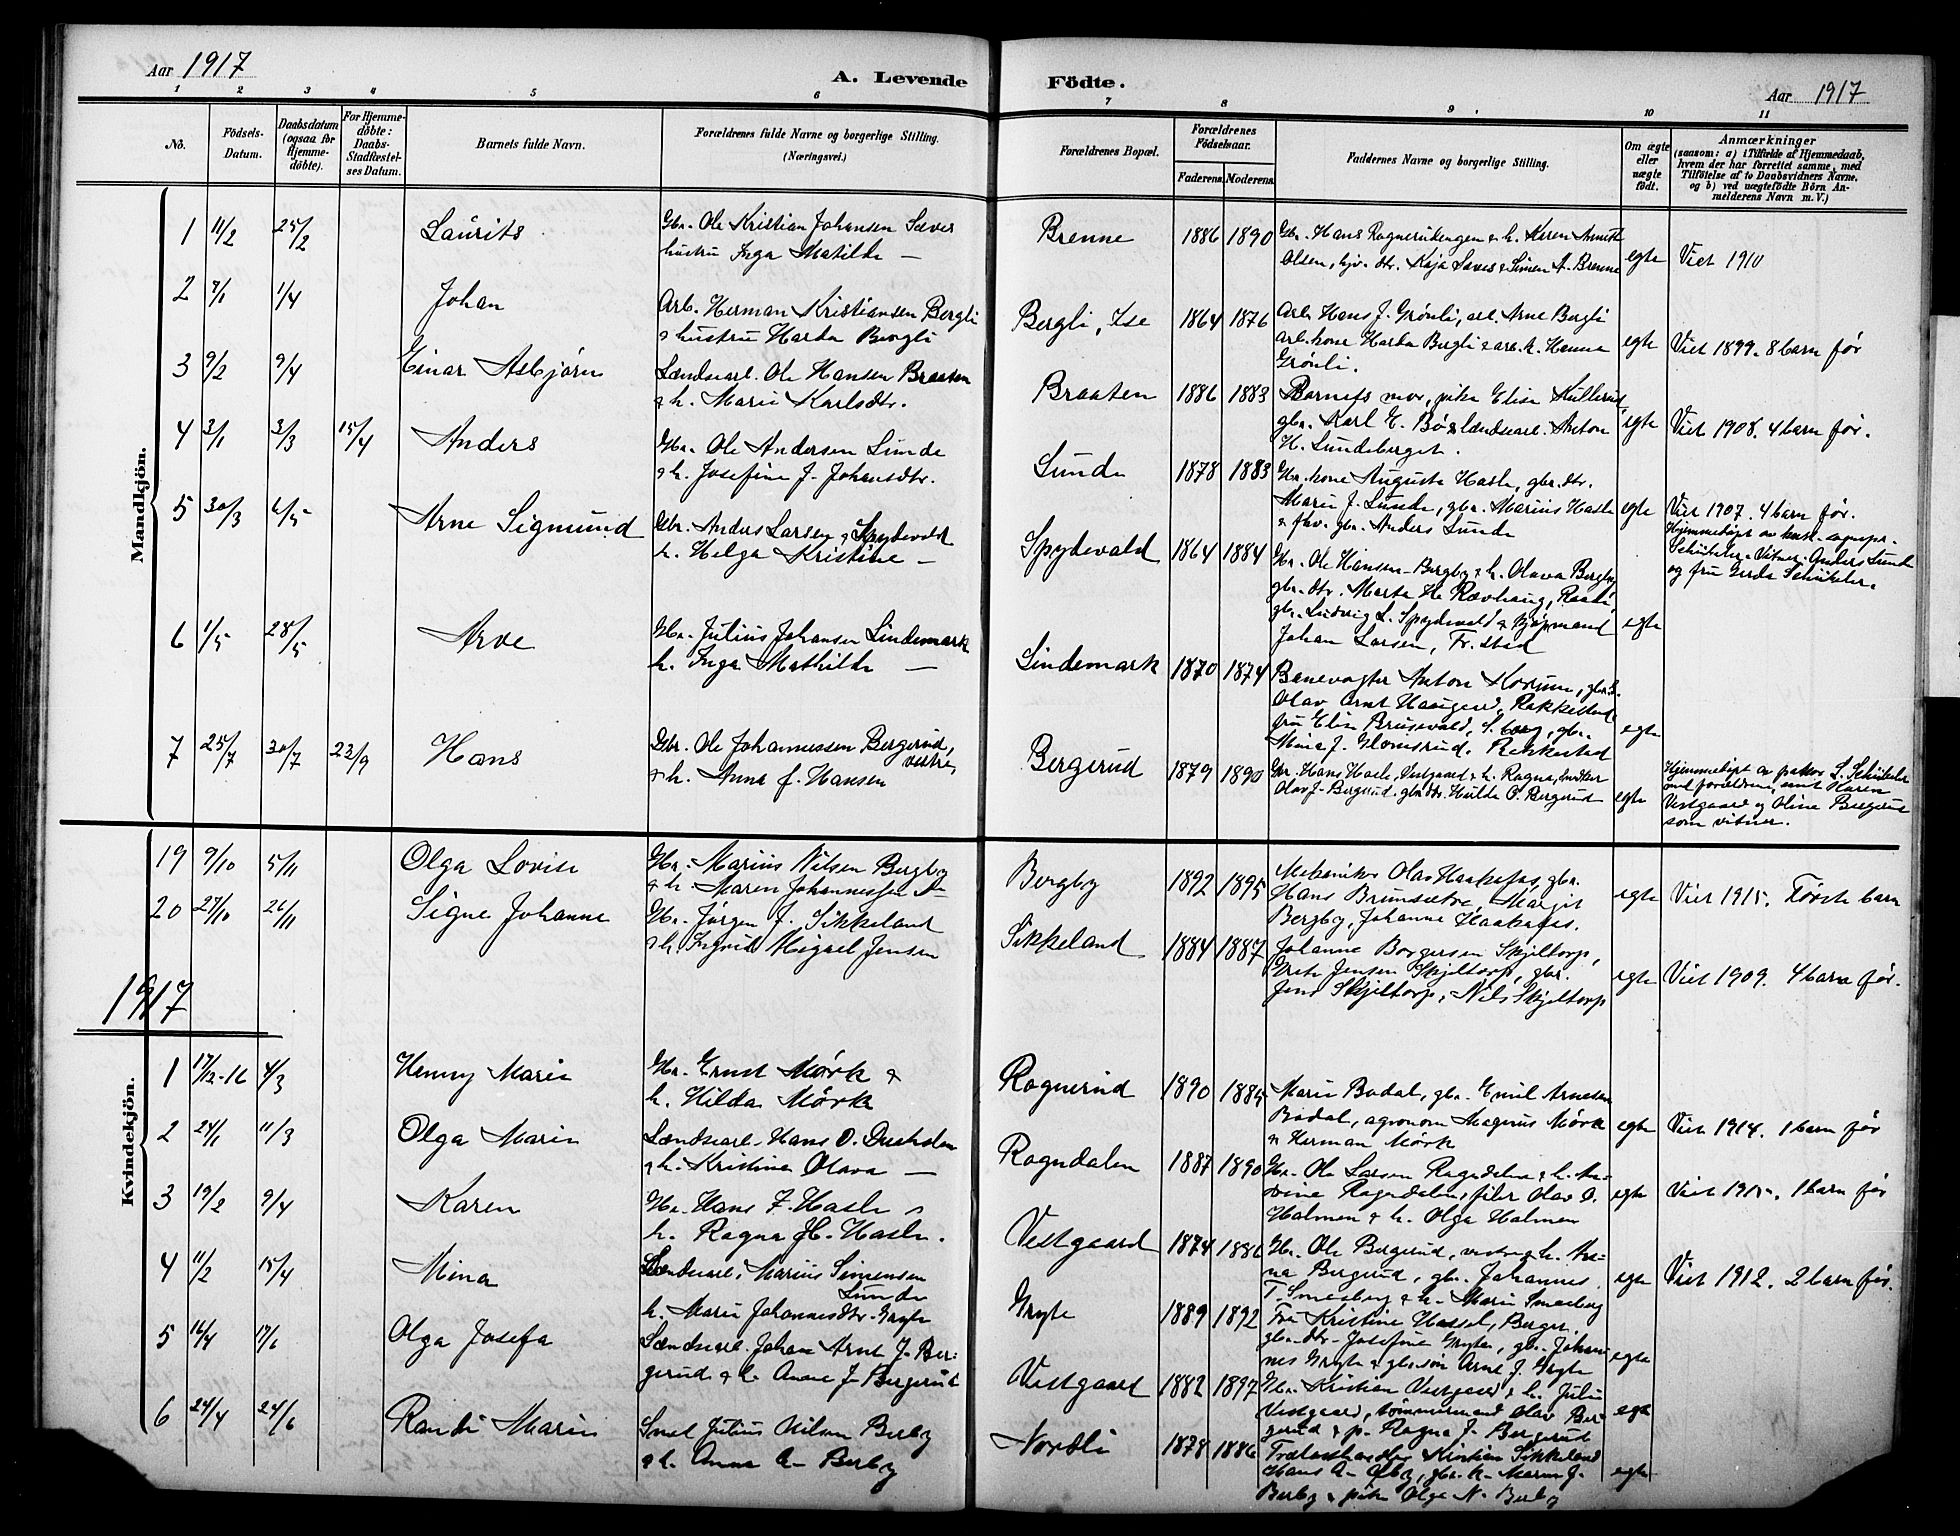 Aar 1917
A. Levende Födte.
Aar 1917
1 2 3 4 5 6 7 8 9 10 11
No.
Födsels-Datum.
Daabsdatum (ogsaa for Hjemmedöbte).
For Hjemmedöbte: Daabs-Stadfæstelses Datum.
Barnets fulde Navn.
Forældrenes fulde Navne og borgerlige Stilling.
(Næringsvei.)
Forældrenes Bopæl.
Forældrenes Födselsaar.
Faderens. Moderens.
Faddernes Navne og borgerlige Stilling.
Om ægte eller uægte födt.
Anmærkninger
(saasom: a) i Tilfælde af Hjemmedaab, hvem der har forrettet samme, med Tilföielse af to Daabsvidners Navne, og b) ved uægtefödte Börn Anmelderens Navn m. V.)
Mandkjön.
1 11/2 25/2 Laurits
Gbr. Ole Kristian Johansen Sæves
hustru Inga Matilde —
Brenne 1886 1890
Gbr. Hans Ragnerudengen & h. Karen
Olsen, hjv. dtr. Kaja Sæves & Simen A. Brenne
egte Viet 1910
2 7/1 1/4 Johan
Arb. Herman Kristiansen Bergli
& hustru Harda Bergli
Bergli, Ise 1864 1876
Arb. Hans J. Grönli, arb. Arne Bergli
arb. kone Harda Bergli & arb. h. Hanna
Grönli.
egte Viet 1899. 8 barn før
3 9/2 9/4 Einar Asbjörn
Landsarb. Ole Hansen Braaten
& h. Marie Karlsdtr.
Braaten 1886 1883
Barnets mor, pike Elise Kullerud,
gbr. Karl E. Bö & landsearb. Anton
H. Lundeberget.
egte Viet 1908. 4 barn før.
4 3/1 3/3 15/4 Anders
Gbr. Ole Andersen Lunde
& h. Josefine J. Johansdtr.
Lunde 1878 1883
Gbr. kone Augusta Hasle, gbr. dtr.
Marie J. Lunde, gbr. Marius Hasle
& fhv. gbr. Anders Lunde
egte Viet 1907. 4 barn før.
Hjemmedøpt av sognepr.
Schübeler. Vitner: Anders Lunde
og fru Gerda Schübeler.
5 30/3 6/5 Arne Sigmund
Gbr. Anders Larsen Spydevold
h. Helga Kristine —
Spydevald 1864 1884
Gbr. Ole Hansen Bergby & h. Olava Bergby
gbr. dtr. Marta H. Rævhaug, Raade,
gbr. Ludvig L. Spydevald & kjøpmand
Johan Larsen, Fr.stad
egte
6 1/5 28/5 Arve
Gbr. Julius Johansen Lindemark
h. Inga Mathilde —
Lindemark 1870 1874
Banevogter Anton
Olav Arnt Haugerud, Rakkestad
fru Elise Brusevald, S.borg, gbr.
Mina J. Glomsrud, Rakkestad
egte
7 25/7 30/7 23/9 Hans
Gbr. Ole Johannessen Bergerud,
vestre,
& h. Anna f. Hansen
Bergerud 1879 1890
Gbr. Hans Hasle, Vestgaard & h. Ragna, snedker
Olav J. Bergerud, gbr. dtr. Hulda O. Bergerud
egte
Hjemmedøpt av pastor L. Schübeler
med forældrene, samt Karen
Vestgaard og Oline Bergerud
som vitner.
19 9/10 5/11 Olga Lovise
Gbr. Marius Nilsen Bergby
& h. Maren Johannesen
Bergby 1892 1895
Mekaniker Olav Haakaas, gbr.
Hans Brunsætre, Margit
Bergby, Johanne Haakaas.
egte Viet 1915. Første barn
20 27/10 26/11 Signe Johanne
Gbr. Jørgen J. Sikkeland
& h. Ingrid Jensen
Sikkeland 1884 1887
Johanne Borgersen Skjeltorp,
Grete Jensen Skjeltorp, gbr.
Jens Skjeltorp, Nils Skjeltorp
egte Viet 1909. 4 barn før.
1917
Kvindekjön.
1 17/12-16 4/3 Henny Marie
Gbr. Ernst Mørk &
h. Hilda Mørk
Ragnerud 1890 1885
Marie Bodal, gbr. Emil Arnesen
Bodal, agronom Magnus Mørk
& Herman Mørk
egte Viet 1914. 1 barn før
2 24/1 11/3 Olga Marie
Landsearb. Hans O.
& h. Kristine Olava —
Rogndalen 1887 1890
Gbr. Ole Larsen Rogndalen & h.
Rogndalen, Olav O.
Holmen & h. Olga Holmen
egte Viet 1915. 1 barn før
3 19/2 9/4 Karen
Gbr. Hans F. Hasle &
h. Ragna H. Hasle.
Vestgaard 1874 1886
Gbr. Ole Bergerud, vestre & h. An-
na Bergerud, gbr. Johannes
T. Smedberg & h. Marie Smedberg
egte Viet 1912. 2 barn før.
4 11/2 15/4 Mina
Landsearb. Marius Simensen
Lunde
h. Marie Johannesdtr. Gryte
Gryte 1889 1892
Fru Kristine Hassel, Berger,
gbr. dtr. Josefine Gryte, gbr. Johan-
nes Gryte & gbr. søn Arne J. Gryte
egte
5 16/4 17/6 Olga Josefa
Landsearb. Johan Arnt J. Ber-
gerud & h. Anna J. Bergerud
Vestgaard 1882 1897
Gbr. Kristian Vestgaard & h. Julie
Vestgaard, tømmermand Olav Ber-
gerud & p. Ragna J. Bergerud
egte
6 24/4 24/6 Randi Marie
Smed Julius Nilsen Berby
& h. Anna A. Berby
Nordli 1878 1886
Trælasthandler Kristian Sikkeland
Hans A. Øby, gbr. k. Maren J.
Berby & pike Olga N. Berby
egte